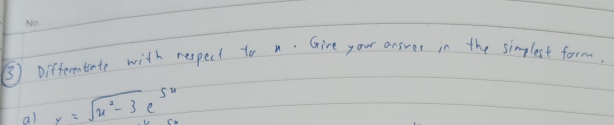 No.
③ Differentiate with respect to x. Give your answer in the simplest form.
a) y = √(x² - 3) e^{5x}